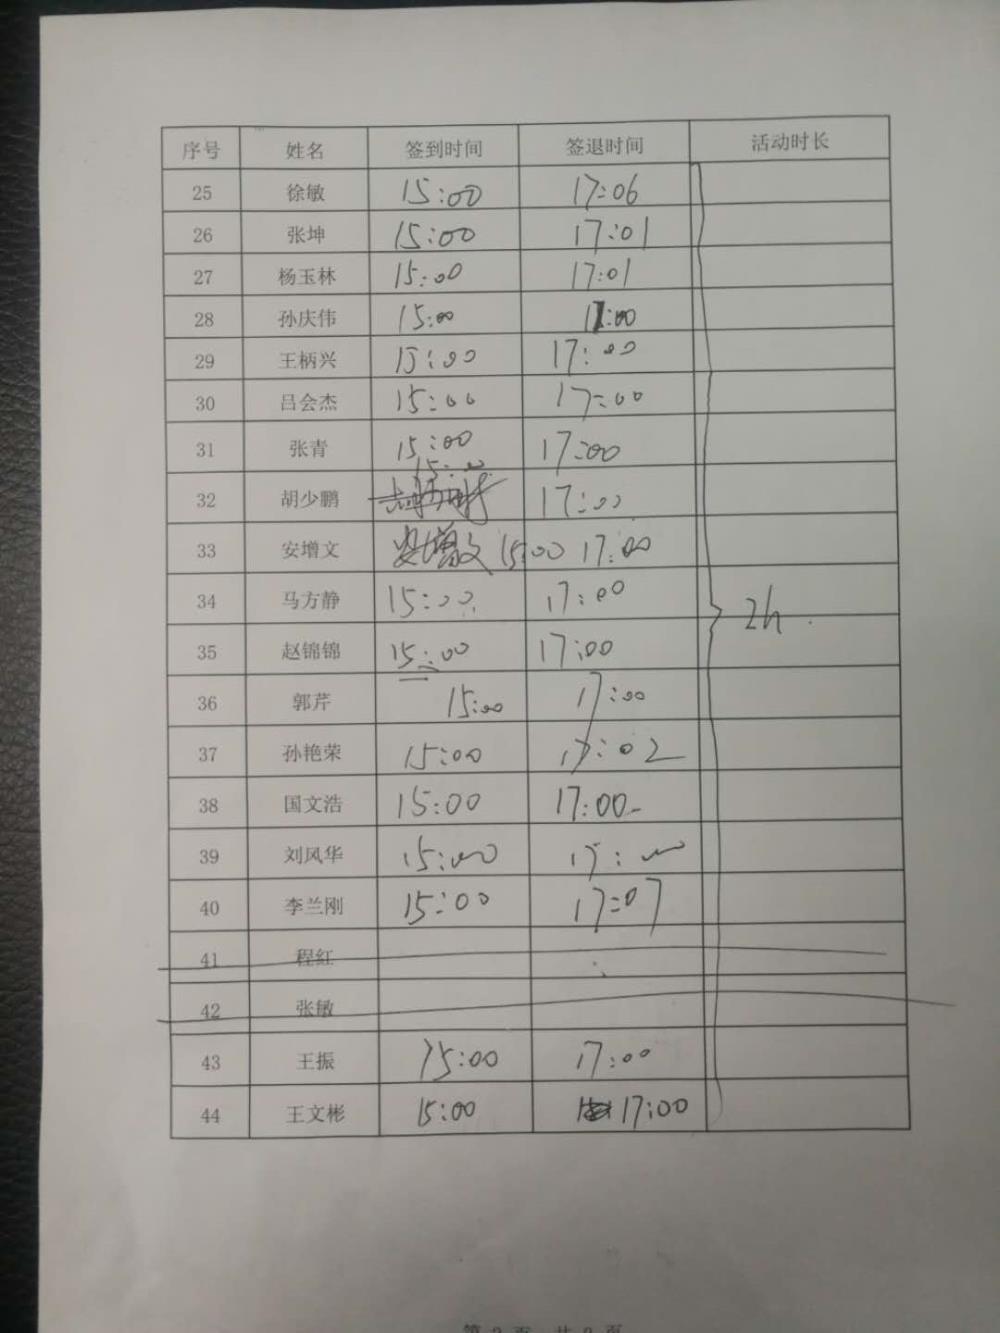 序号 姓名 签到时间 签退时间 活动时长
25 徐敏 15:00 17:06
26 张坤 15:00 17:01
27 杨玉林 15:00 17:01
28 孙庆伟 15:00 17:00
29 王柄兴 15:00 17:00
30 吕会杰 15:00 17:00
31 张青 15:00 17:00
15:00
32 胡少鹏 17:00
33 安增文 安增文 15:00 17:00
34 马方静 15:00 17:00
2h
35 赵锦锦 15:00 17:00
36 郭芹 15:00 17:00
37 孙艳荣 15:00 17:02
38 国文浩 15:00 17:00
39 刘风华 15:00 17:00
40 李兰刚 15:00 17:07
41 程红
42 张敏
43 王振 15:00 17:00
44 王文彬 15:00 17:00